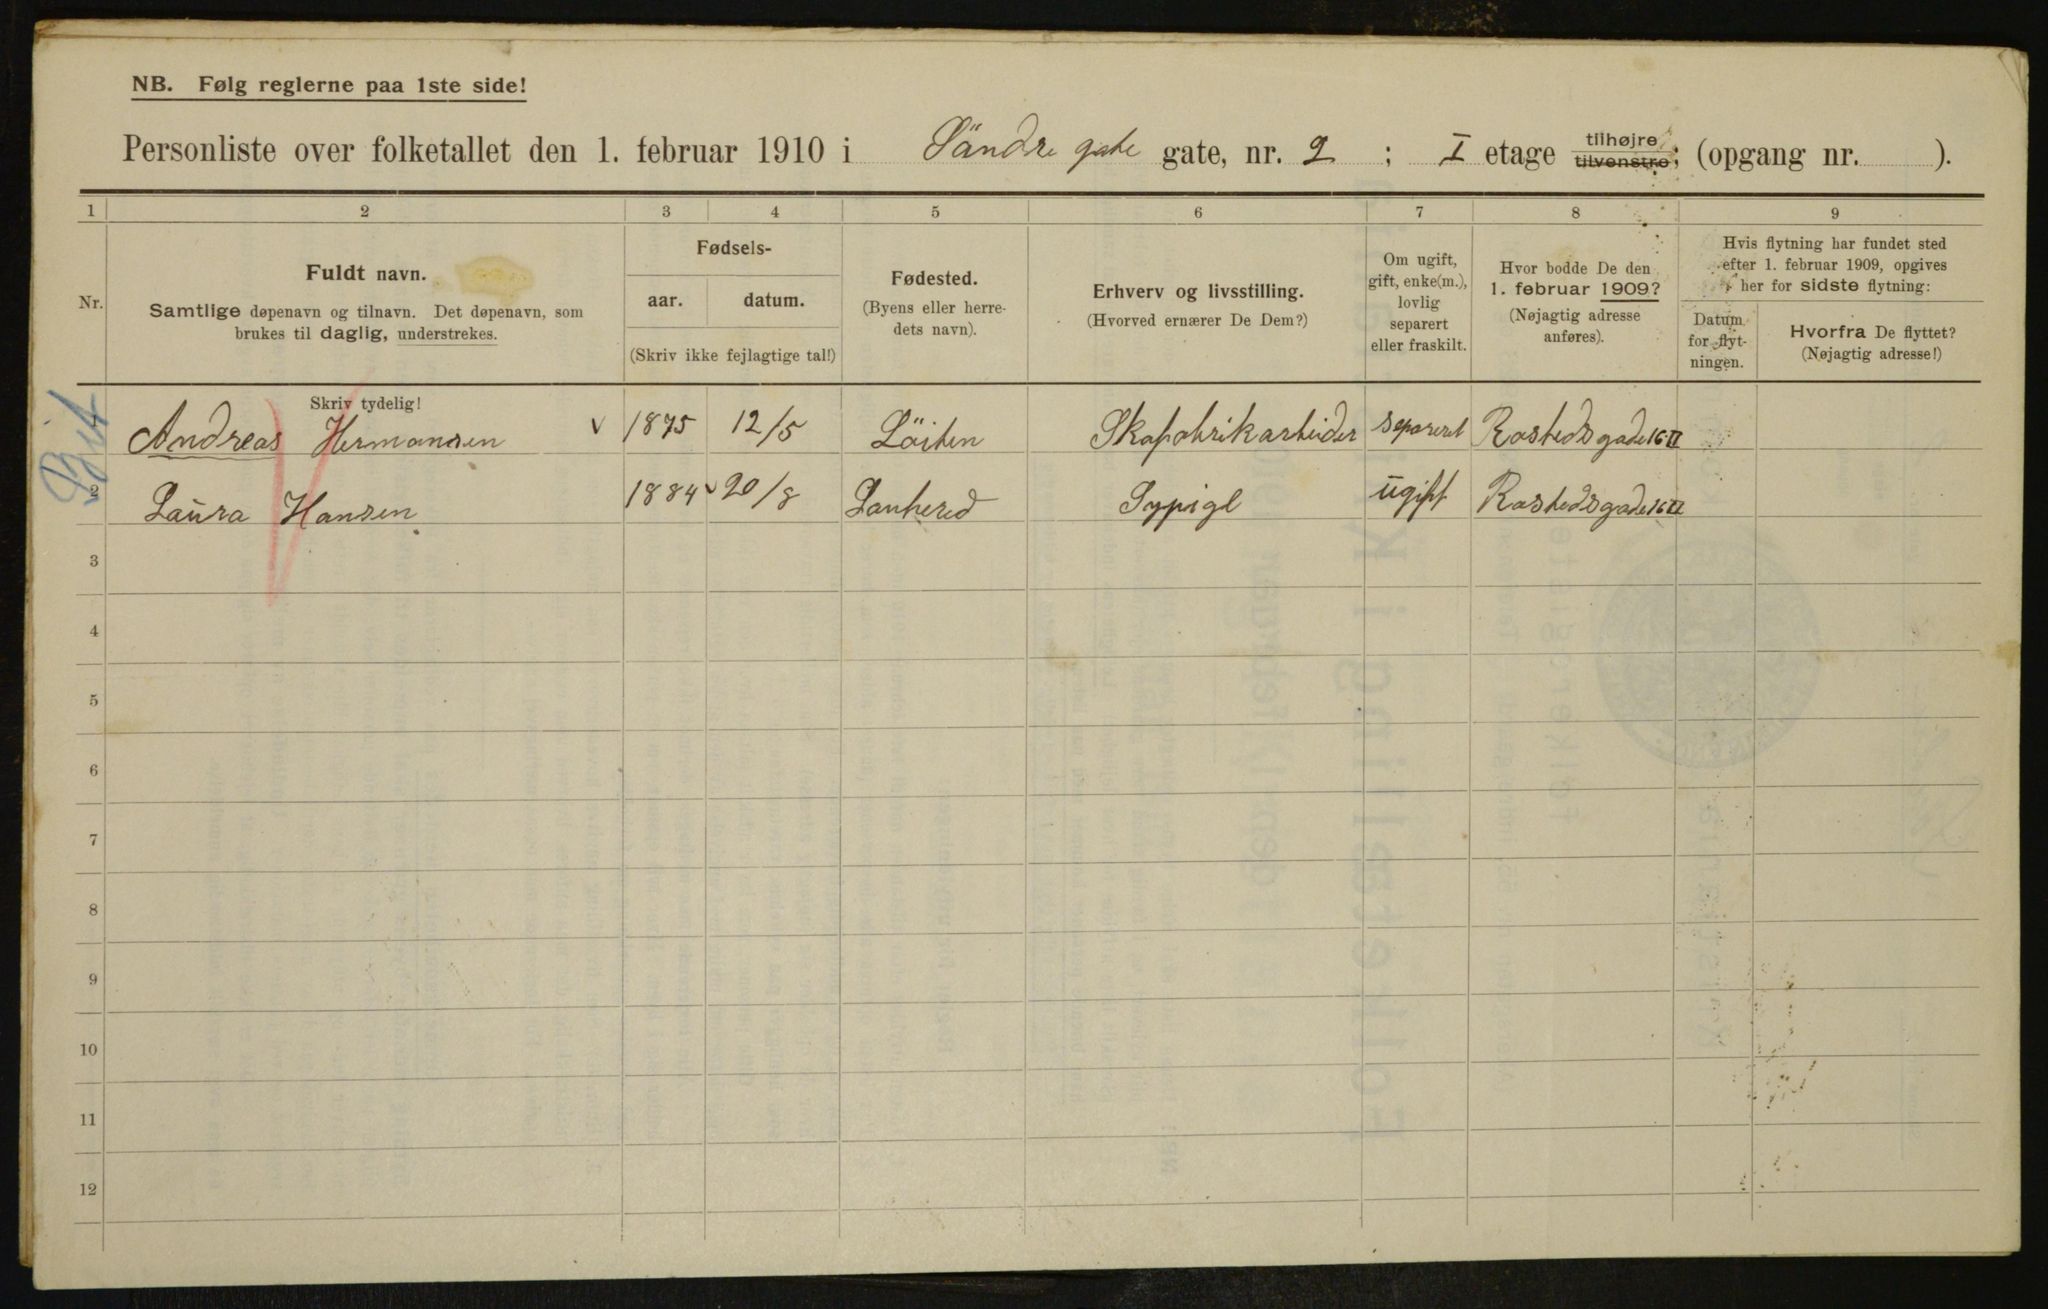 NB. Følg reglerne paa 1ste side!
Personliste over folketallet den 1. februar 1910 i Söndre gate gate, nr. 2 ; I etage tilhøjre tilvenstre; (opgang nr. ).
1 2 3 4 5 6 7 8 9
Nr.
Fuldt navn.
Samtlige døpenavn og tilnavn. Det døpenavn, som
brukes til daglig, understrekes.
Fødsels-
aar. datum.
(Skriv ikke fejlagtige tal!)
Fødested.
(Byens eller herre-
dets navn).
Erhverv og livsstilling.
(Hvorved ernærer De Dem?)
Om ugift,
gift, enke(m.),
lovlig
separert
eller fraskilt.
Hvor bodde De den
1. februar 1909?
(Nøjagtig adresse
anføres).
Hvis flytning har fundet sted
efter 1. februar 1909, opgives
her for sidste flytning:
Datum
for flyt-
ningen.
Hvorfra De flyttet?
(Nøjagtig adresse!)
Skriv tydelig!
1 Andreas Hermansen 1875 12/5 Löiten Skofabrikarbeider separert Roshedsgade 16 II
2 Laura Hansen 1884 20/8 Sypige ugift Roshedsgade 16 II
3
4
5
6
7
8
9
10
11
12